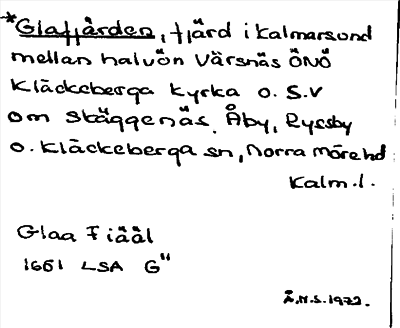 *Glafjärden, fjärd i Kalmarsund
mellan halvön Värsnäs ÖNÖ
Kläckeberga kyrka o. S.V
om Skäggenäs. Åby, Ryssby
o. Kläckeberga sn, Norra Möre hd
Kalm.l.
Glaa Fiääl
1661 LSA G"
Å.H.S. 1972.